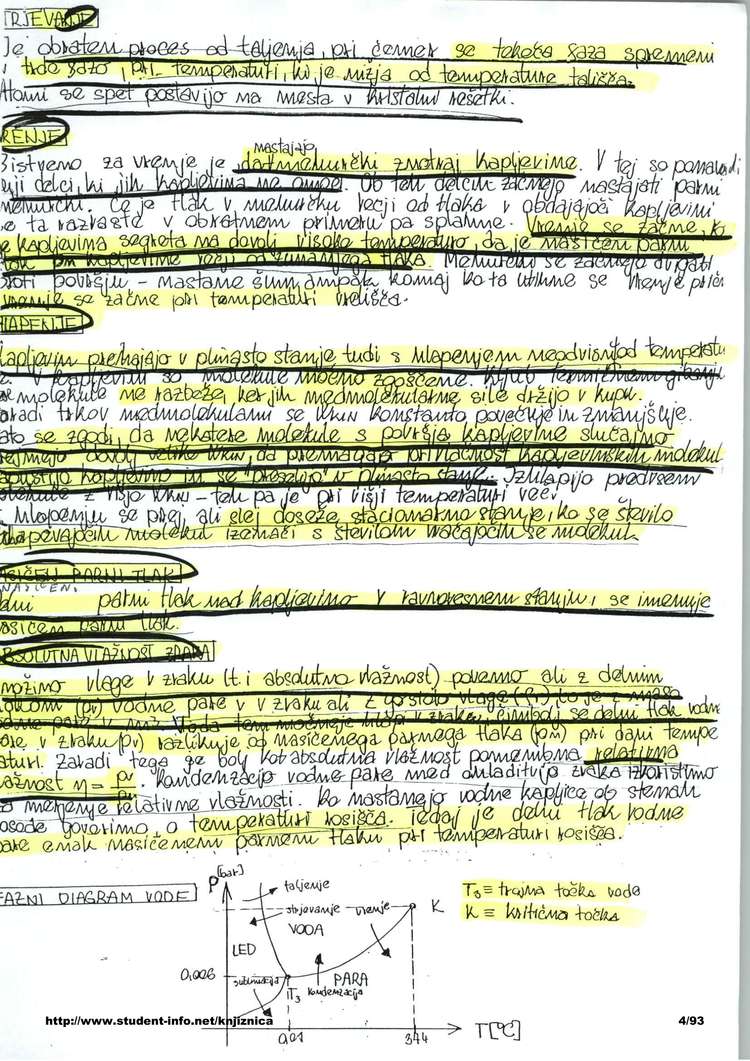 TRJEVANJE
Je obraten proces od taljenja, pri čemer se tekoča faza spremeni
v trdo fazo, pri temperaturi, ki je nižja od temperature tališča.
Atomi se spet postavijo na mesta v kristalni rešetki.
RENJE
nastajajo
Bistveno za vrenje je, da mehurčki znotraj kapljevine. V tej so ponavadi
tuji delci, ki jih kapljevina ne omoči. Ob teh delcih začnejo nastajati parni
mehurčki. Če je tlak v mehurčku večji od tlaka v obdajajoči kapljevini
se ta razraste v obratnem primeru pa splahne. Vrenje se začne, ko
je kapljevina segreta na dovolj visoko temperaturo, da je nasičeni parni
tlak pri kapljevine večji od zunanjega tlaka. Mehurčki se začnejo dvigati
proti površju - nastane šum ampak komaj ko ta utihne se vrenje prične
vrenje se začne pri temperaturi vrelišča.
HLAPENJE
Kapljevin prehajajo v plinasto stanje tudi s hlapenjem neodvisni od temperatu
V kapljevini so molekule močno zgoščene. Kljub termičnem gibanju
se molekule ne razbeže, ker jih medmolekularne sile držijo v kupu.
zaradi trkov medmolekulami se Wkin konstanto povečuje in zmanjšuje.
zato se zgodi, da nekatere molekule s površja kapljevine slučajno
prejmejo dovolj veliko Wkin, da premagajo privlačnost kapljevinskih molekul
zapustijo kapljevino in se "preselijo" v plinasto stanje. Izhlapijo predvsem
molekule z višjo Wkin - teh pa je pri višji temperaturi več.
hlapenju se prej ali slej doseže stacionarno stanje, ko se število
izhlapevajočih molekul izenači s številom vračajočih se molekul.
ASIČEN PARNI TLAK
NASIČEN
parni tlak nad kapljevino v ravnovesnem stanju, se imenuje
nasičen parni tlak.
ABSOLUTNA VLAŽNOST ZRAKA
množino vlage v zraku (t.i absolutno vlažnost) povemo ali z delnim
tlakom (pv) vodne pare v v zraku ali z gostoto vlage (ρv) to je z maso
vodne pare v m³. Toda tem močneje hlapi v zraku, čimbolj se delni tlak vodne
pare v zraku (pv) razlikuje od nasičenega parnega tlaka (pn) pri dani tempe
raturi. Zaradi tega je bolj kot absolutna vlažnost pomembna relativna
vlažnost η = pv/pn. Kondenzacijo vodne pare med ohladitvijo zraka izkoristimo
za merjenje relativne vlažnosti. Ko nastanejo vodne kapljice ob stenah
posode govorimo o temperaturi rosišča. tedaj je delni tlak vodne
pare enak nasičenemu parnemu tlaku pri temperaturi rosišča.
FAZNI DIAGRAM VODE
P [bar]
taljenje
strjevanje
vrenje
K
VODA
LED
0,006
sublimacija
T3
kondenzacija
PARA
0,01
374
T[°C]
T3 ≡ trojna točka vode
K ≡ kritična točka
http://www.student-info.net/knjiznica
4/93